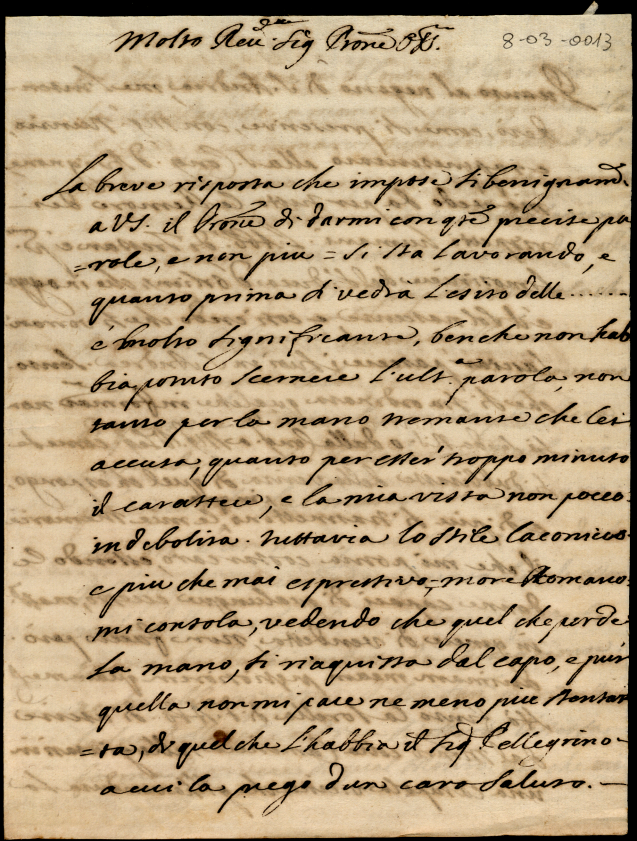 Molto Reu.do Sig Prone Oss.
8-03-0013
La breve risposta che impose si benignam.
a VS. il Prone di darmi con qte precise pa
=role, e non piu = si sta lavorando, e
quanto prima si vedrà l'esito delle......
é molto significante, benche non hab
bia potuto scernere l'ult.a parola, non
tanto per la mano tremante che lei
accusa, quanto per esser troppo minuto
il carattere, e la mia vista non pocco
indebolita. tuttavia lo stile laconico
e piu che mai espressivo, more Romano
mi consola, vedendo che quel che perde
la mano, si riaquista dal capo, e pur
quella non mi pare ne meno piu stentat
=ta, di quel che l'habbia il Sig Pellegrino
a cui la prego d'un caro saluto.